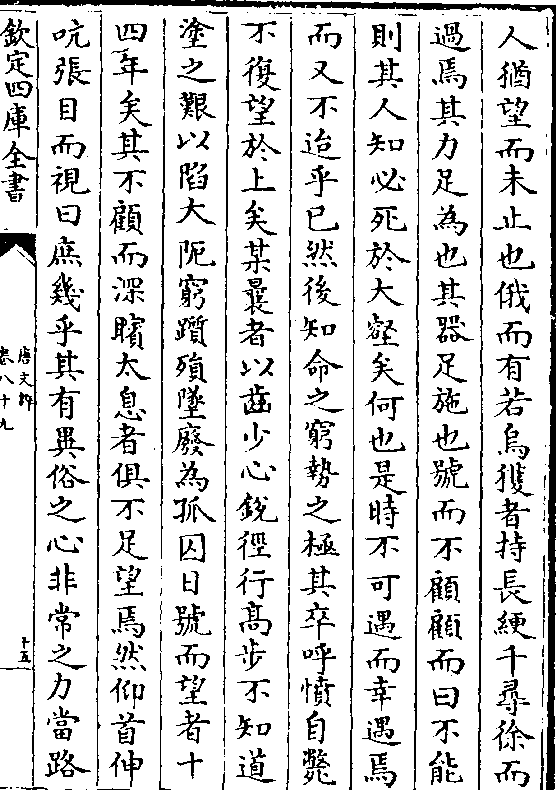 人猶望而未止也俄而有若烏獲者持長綆千尋徐而
過焉其力足為也其器足施也號而不顧顧而曰不能
則其人知必死於大壑矣何也是時不可遇而幸遇焉
而又不迨乎已然後知命之窮勢之極其卒呼憤自斃
不復望於上矣某曩者以齒少心銳徑行髙步不知道
塗之艱以陷大阨窮躓殞墜廢為孤囚日號而望者十
四年矣其不顧而深矉太息者俱不足望焉然仰首伸
吭張目而視曰庶幾乎其有異俗之心非常之力當路
欽定四庫全書
唐文粹
卷八十九
十五